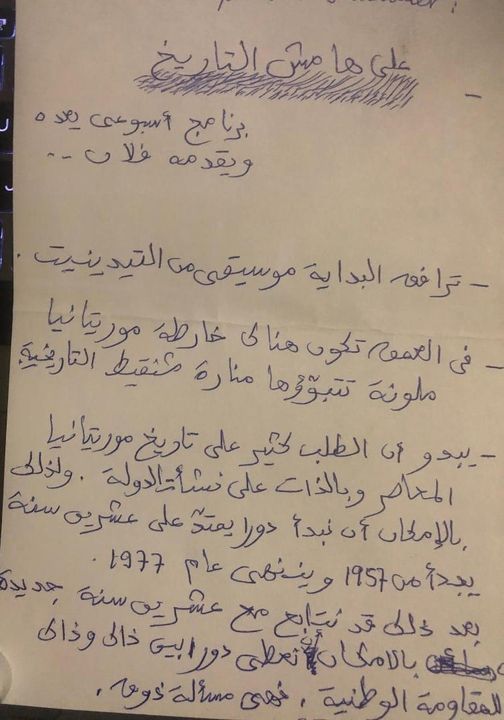 على هامش التاريخ
برنامج أسبوعي يعده
ويقدمه فلان ..
- ترافق البداية موسيقى من التيدينيت .
- في العمق تكون هنالك خارطة موريتانيا
ملونة تتبوؤها منارة شنقيط التاريخية.
- يبدو أن الطلب كثير على تاريخ موريتانيا
المعاصر وبالذات على نشأت الدولة . ولذلك
بالإمكان أن نبدأ دورا يمتد على عشرين سنة
يبدأ من 1957 وينتهي عام 1977 .
بعد ذلك قد نتابع مع عشرين سنة جديدة
بالامكان أن نعطي دورا بين ذلك وذلك
للمقاومة الوطنية . فهي مسألة ذوق .